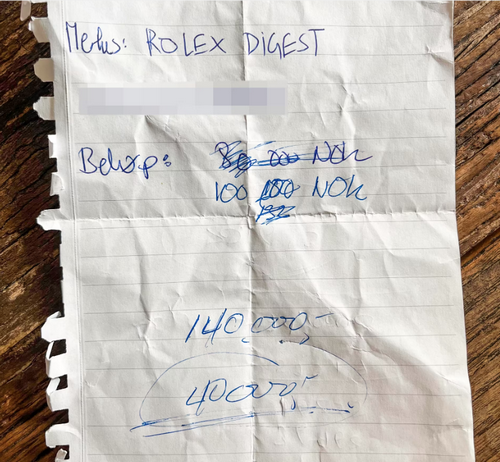 Merkes: ROLEX DIGEST
Beløp: NOK
100 NOK
140,000,-
40000,-